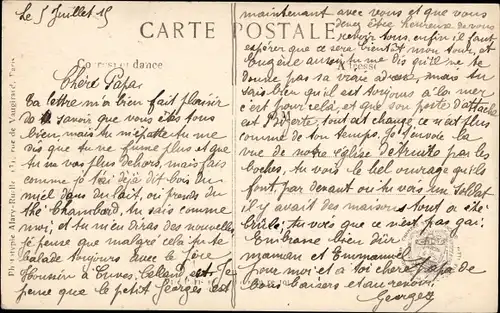 Le 5 Juillet 15
CARTE POSTALE
Correspondance
Adresse
Chère Papa
Ta lettre m'a bien fait plaisir
de savoir que vous êtes tous
bien mais tu m'épatte tu me
dis que tu ne fume plus et que
tu ne vas plus dehors, mais fais
comme je t'ai déjà dit bois du
miel dans du lait, ou prends du
thé Chambard, tu sais comme
moi, et tu me diras des nouvelles
je pense que malgré cela tu te
balade toujours avec le Père
est Je
pense que le petit Georges est
maintenant avec vous et que vous
devez être heureux de vous
revoir tous, enfin il faut
espérer que ce sera bientôt mon tour, et
Eugène aussi tu me dis qu'il ne te
donne pas sa vraie adresse, mais tu
sais bien qu'il est toujours à la mer
c'est pour celà, et que son porte d'attache
est tout a changé ce n'est plus
comme de ton temps. Je t'envoie la
vue de notre église détruite par les
boches, tu vois le bel ouvrage qu'ils
font, par devant ou tu vois un soldat
il y avait des maisons tout a été
brulé, tu vois que ce n'est pas gai.
Embrasse bien
maman et Emmanuel
pour moi et a toi chère papa de
bons baisers et au revoir
Georges
Phototypie rue de Vaugirard, Paris